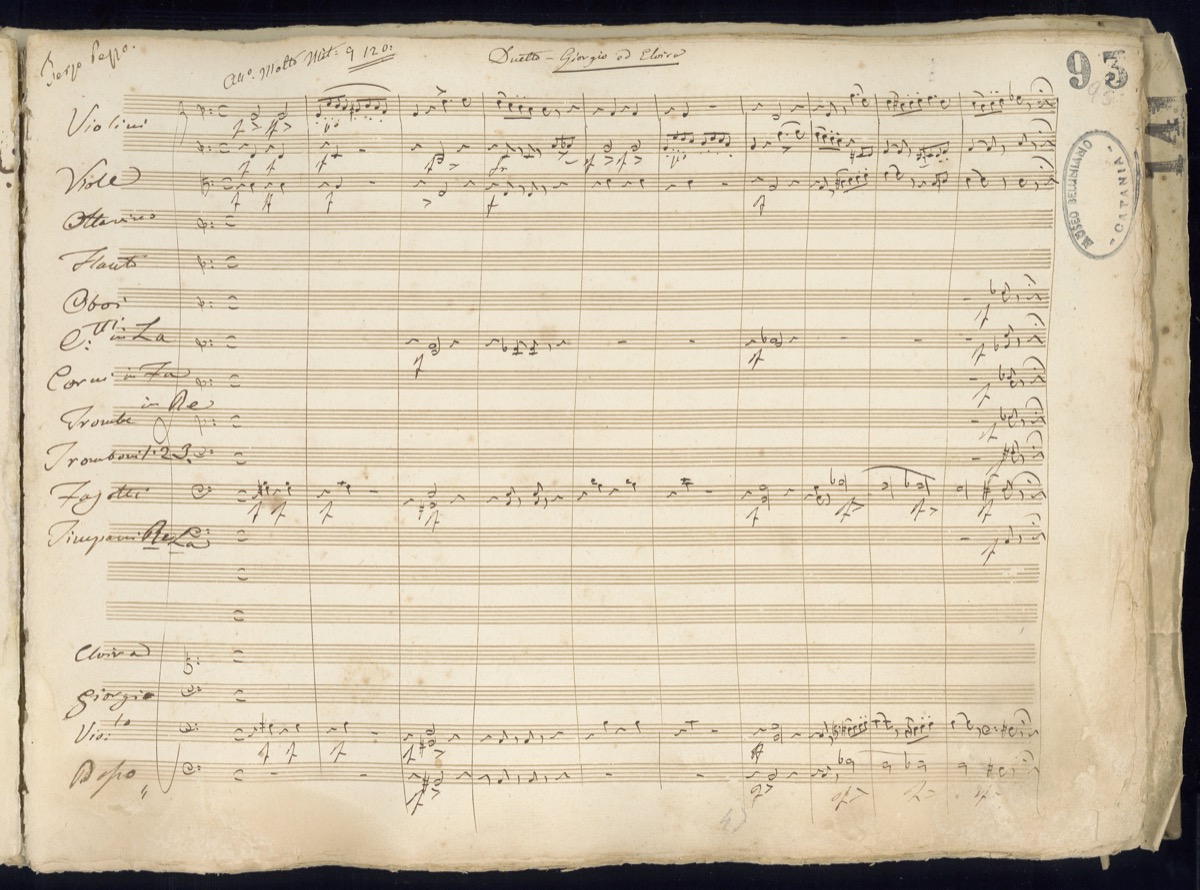 Terzo Pezzo.
All.º Molto Met: 9 120:
Duetto - Giorgio ed Elvira
93
141
MUSEO BELLINIANO
- CATANIA -
Violini
Viole
Ottavino
Flauto
Oboi
C.tti: in La
Corni in Fa
in Re
Trombe
Tromboni 1. 2. 3.
Fagotti
Timpani Re La
Elvira
Giorgio